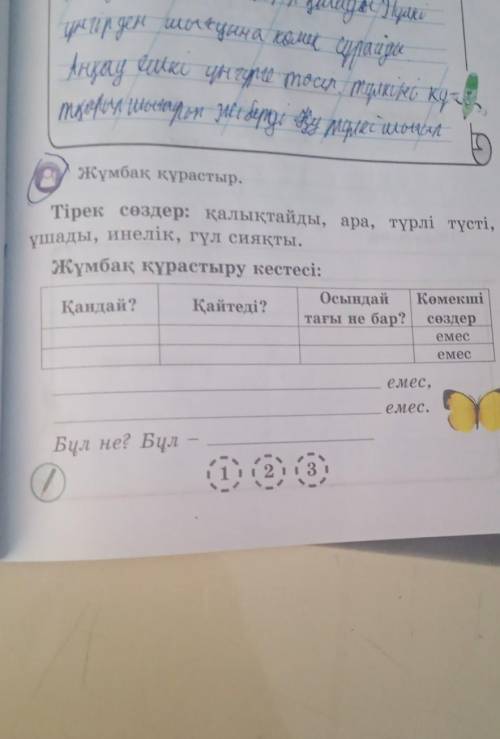 үңгірден шығуына көмек сұрайды
Аңқау ешкі үңгірге түсіп, түлкіні құ-
тқарып шығарып жібереді түлкі шығып
Жұмбақ құрастыр.
Тірек сөздер: қалықтайды, ара, түрлі түсті,
ұшады, инелік, гүл сияқты.
Жұмбақ құрастыру кестесі:
Қандай? Қайтеді? Осындай тағы не бар? Көмекші сөздер
емес
емес
емес,
емес.
Бұл не? Бұл –
1 2 3